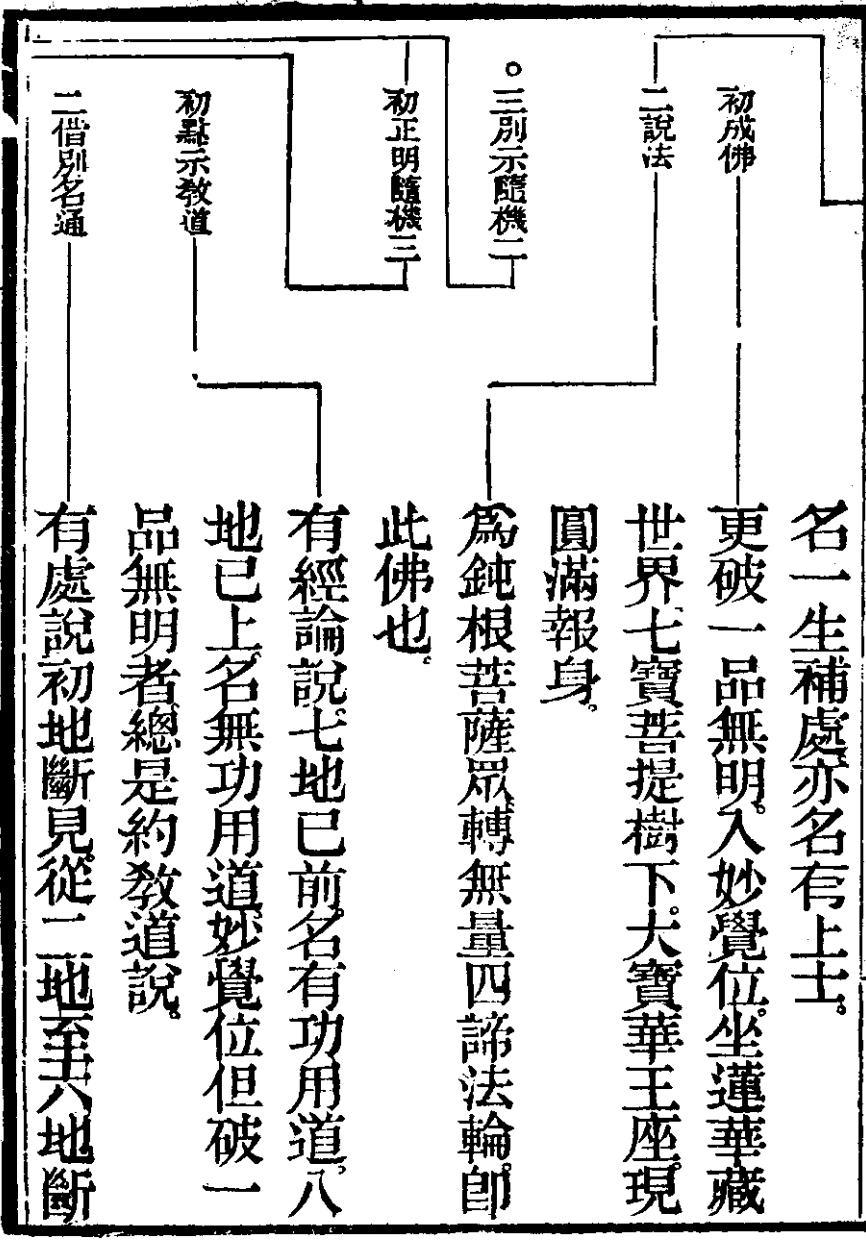 初成佛
二說法
。三別示隨機二
初正明隨機三
初點示教道
二借別名通
名一生補處、亦名有上士。
更破一品無明。入妙覺位。坐蓮華藏
世界七寶菩提樹下。大寶華王座。現
圓滿報身。
為鈍根菩薩眾、轉無量四諦法輪。卽
此佛也。
有經論說。七地已前。名有功用道。八
地已上。名無功用道。妙覺位但破一
品無明者。總是約教道說。
有處說初地斷見。從二地至六地斷